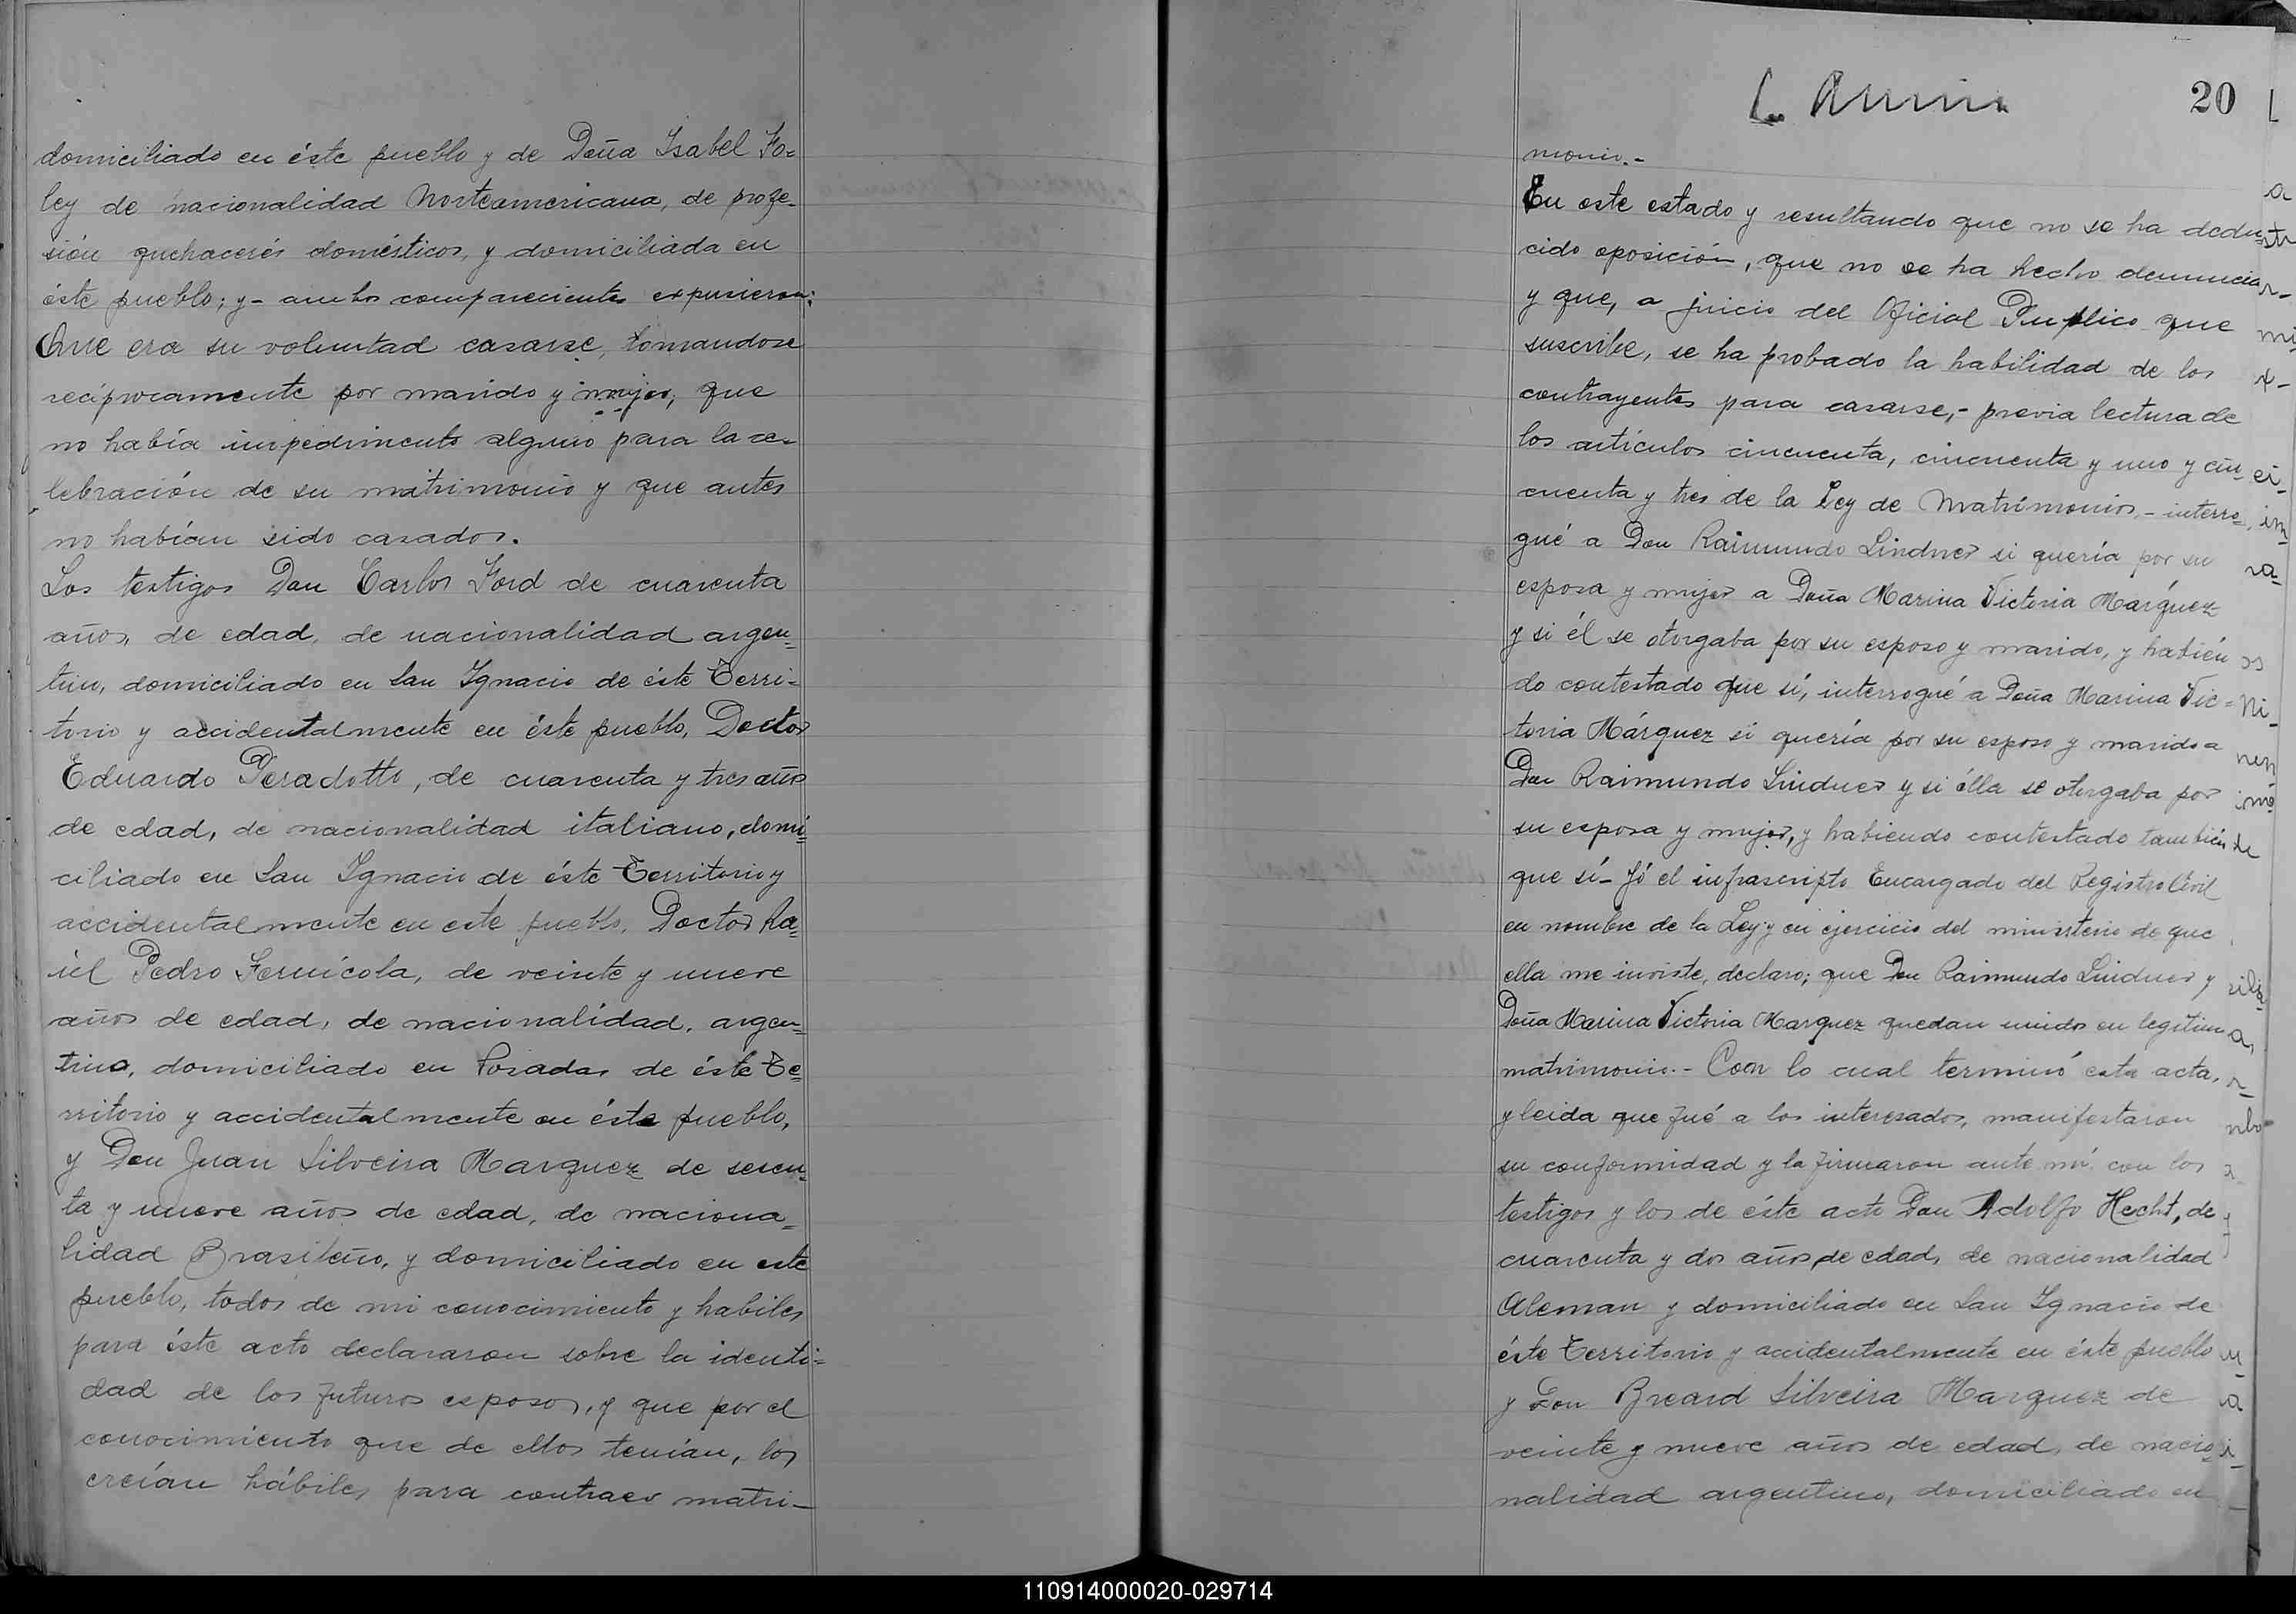 domiciliado en éste pueblo y de Doña Isabel Fo=
ley de nacionalidad Norteamericana, de profe-
sión quehacerés domésticos, y domiciliada en
éste pueblo; y- ambos comparecientes expusieron:
Que era su voluntad casarse, tomandose
recíprocamente por marido y mujer, que
no había impedimento alguno para la ce-
lebración de su matrimonio y que antes
no habían sido casados.
Los testigos Don Carlos Ford de cuarenta
años, de edad, de nacionalidad argen=
tino, domiciliado en San Ignacio de éste Terri=
torio y accidentalmente en éste pueblo, Doctor
Eduardo Peradotto, de cuarenta y tres años
de edad, de nacionalidad italiano, domi=
ciliado en San Ignacio de éste Territorio y
accidentalmente en este pueblo, Doctor Ra=
úl Pedro Fernícola, de veinte y nueve
años de edad, de nacionalidad, argen=
tino, domiciliado en Posadas de éste Te=
rritorio y accidentalmente en éste pueblo,
y Don Juan Silveira Marquez de sesen=
ta y nueve años de edad, de naciona=
lidad Brasileño, y domiciliado en este
pueblo, todos de mi conocimiento y habiles
para éste acto declararon sobre la identi=
dad de los futuros esposos, y que por el
conocimiento que de ellos tenían, los
creían hábiles para contraer matri-
20
monio.-
En este estado y resultando que no se ha dedu=
cido oposición, que no se ha hecho denuncia
y que, a juicio del Oficial Publico que
suscribe, se ha probado la habilidad de los
contrayentes para casarse,- previa lectura de
los artículos cincuenta, cincuenta y uno y cin=
cuenta y tres de la Ley de Matrimonios,- interro=
gué a Don Raimundo Lindner si quería por su
esposa y mujer a Doña Marina Victoria Marquez
y si él se otorgaba por su esposo y marido, y habién
do contestado que sí, interrogué a Doña Marina Vic=
toria Márquez si quería por su esposo y marido a
Don Raimundo Lindner y si élla se otorgaba por
su esposa y mujer, y habiendo contestado también
que sí- Yó el infrascripto Encargado del Registro Civil
en nombre de la Ley y en ejercicio del ministerio de que
ella me inviste, declaro; que Don Raimundo Lindner y
Doña Marina Victoria Marquez quedan unidos en legitimo
matrimonio.- Con lo cual terminó esta acta,
y leida que fué a los interesados, manifestaron
su conformidad y la firmaron ante mí con los
testigos y los de éste acto Don Adolfo Hecht, de
cuarenta y dos años de edad, de nacionalidad
Aleman y domiciliado en San Ignacio de
éste Territorio y accidentalmente en éste pueblo
y Don Breard Silveira Marquez de
veinte y nueve años de edad, de nacio=
nalidad argentino, domiciliado en
110914000020-029714